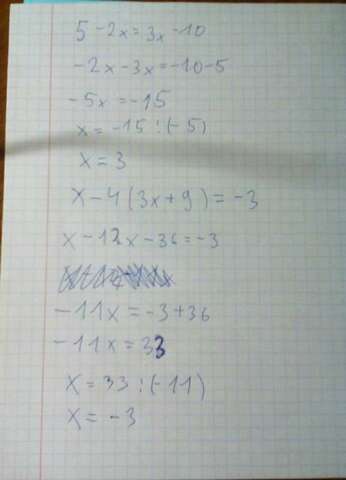 5 - 2x = 3x - 10
-2x - 3x = -10 - 5
-5x = -15
x = -15 : (-5)
x = 3
x - 4(3x + 9) = -3
x - 12x - 36 = -3
-11x = -3 + 36
-11x = 33
x = 33 : (-11)
x = -3